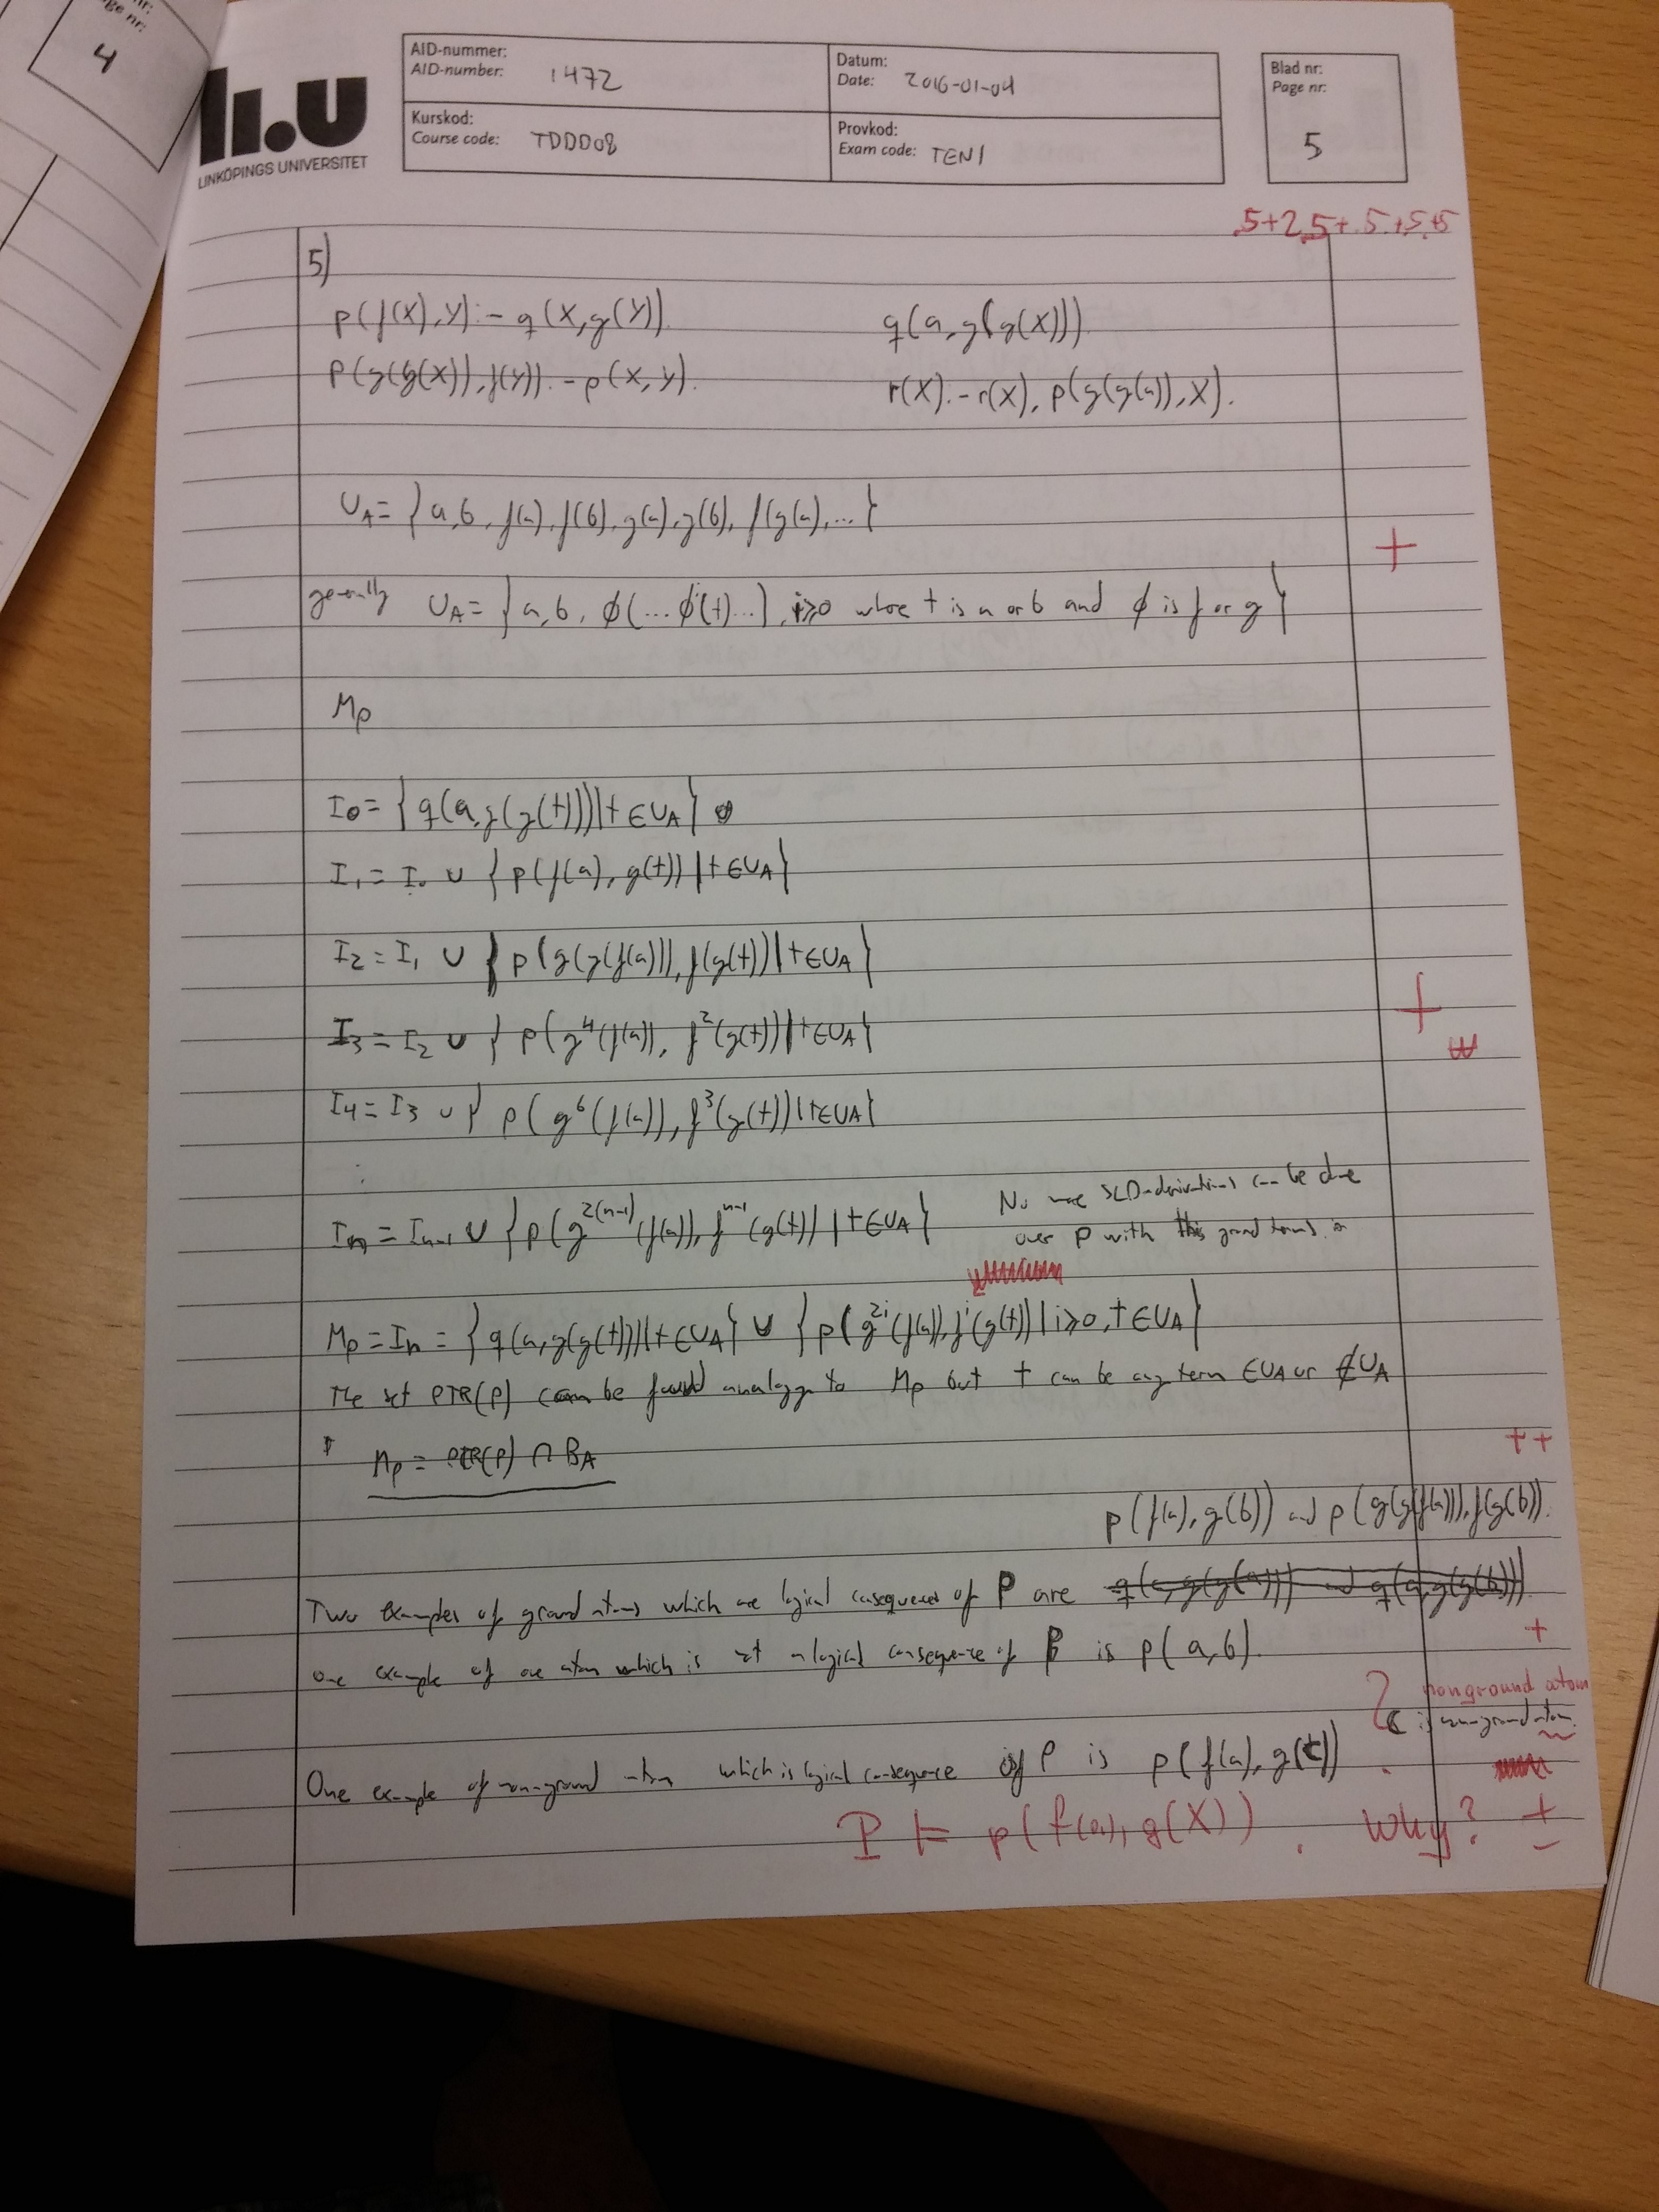 ge nr:
4
LiU
LINKÖPINGS UNIVERSITET
AID-nummer:
AID-number: 1472
Datum:
Date: 2016-01-04
Kurskod:
Course code: TDDD08
Provkod:
Exam code: TEN1
Blad nr:
Page nr:
5
.5+2.5+.5+.5+.5
5)
p(f(X),Y):-q(X,g(Y)). q(a,g(g(X))).
p(g(g(X)),f(Y)):-p(X,Y). r(X):-r(X), p(g(g(a)),X).
U_A = {a,b,f(a),f(b),g(a),g(b),f(g(a),...}
+
generally U_A = {a,b, φ(...φ(t)...), i≥0 where t is a or b and φ is f or g}
Mp
I0 = {q(a,g(g(t)))|t∈U_A}
I1 = I0 ∪ {p(f(a),g(t))|t∈U_A}
I2 = I1 ∪ {p(g(g(f(a))),f(g(t))|t∈U_A}
I3 = I2 ∪ {p(g^4(f(a)), f^2(g(t))|t∈U_A}
+
I4 = I3 ∪ {p(g^6(f(a)),f^3(g(t))|t∈U_A}
:
In = In-1 ∪ {p(g^2(n-1)(f(a)),f^n-1(g(t))|t∈U_A} No more SLD-derivations can be done
over P with this ground terms in
Mp = In = {q(a,g(g(t))|t∈U_A} ∪ {p(g^2i(f(a)),f^i(g(t))|i≥0,t∈U_A}
The set PTR(P) can be found analogy to Mp but t can be any term ∈U_A or ∉U_A
Mp = PTR(P) ∩ B_A
++
p(f(a),g(b)) and p(g(g(f(a))),f(g(b)).
Two examples of ground atoms which are logical consequences of P are q(a,g(g(a))) and q(a,g(g(b)))
+
one example of one atom which is not a logical consequence of P is p(a,b).
nonground atom
is non-ground atom.
One example of non-ground atom which is logical consequence of P is p(f(a),g(t))
P ⊨ p(f(a),g(X)). Why? ±